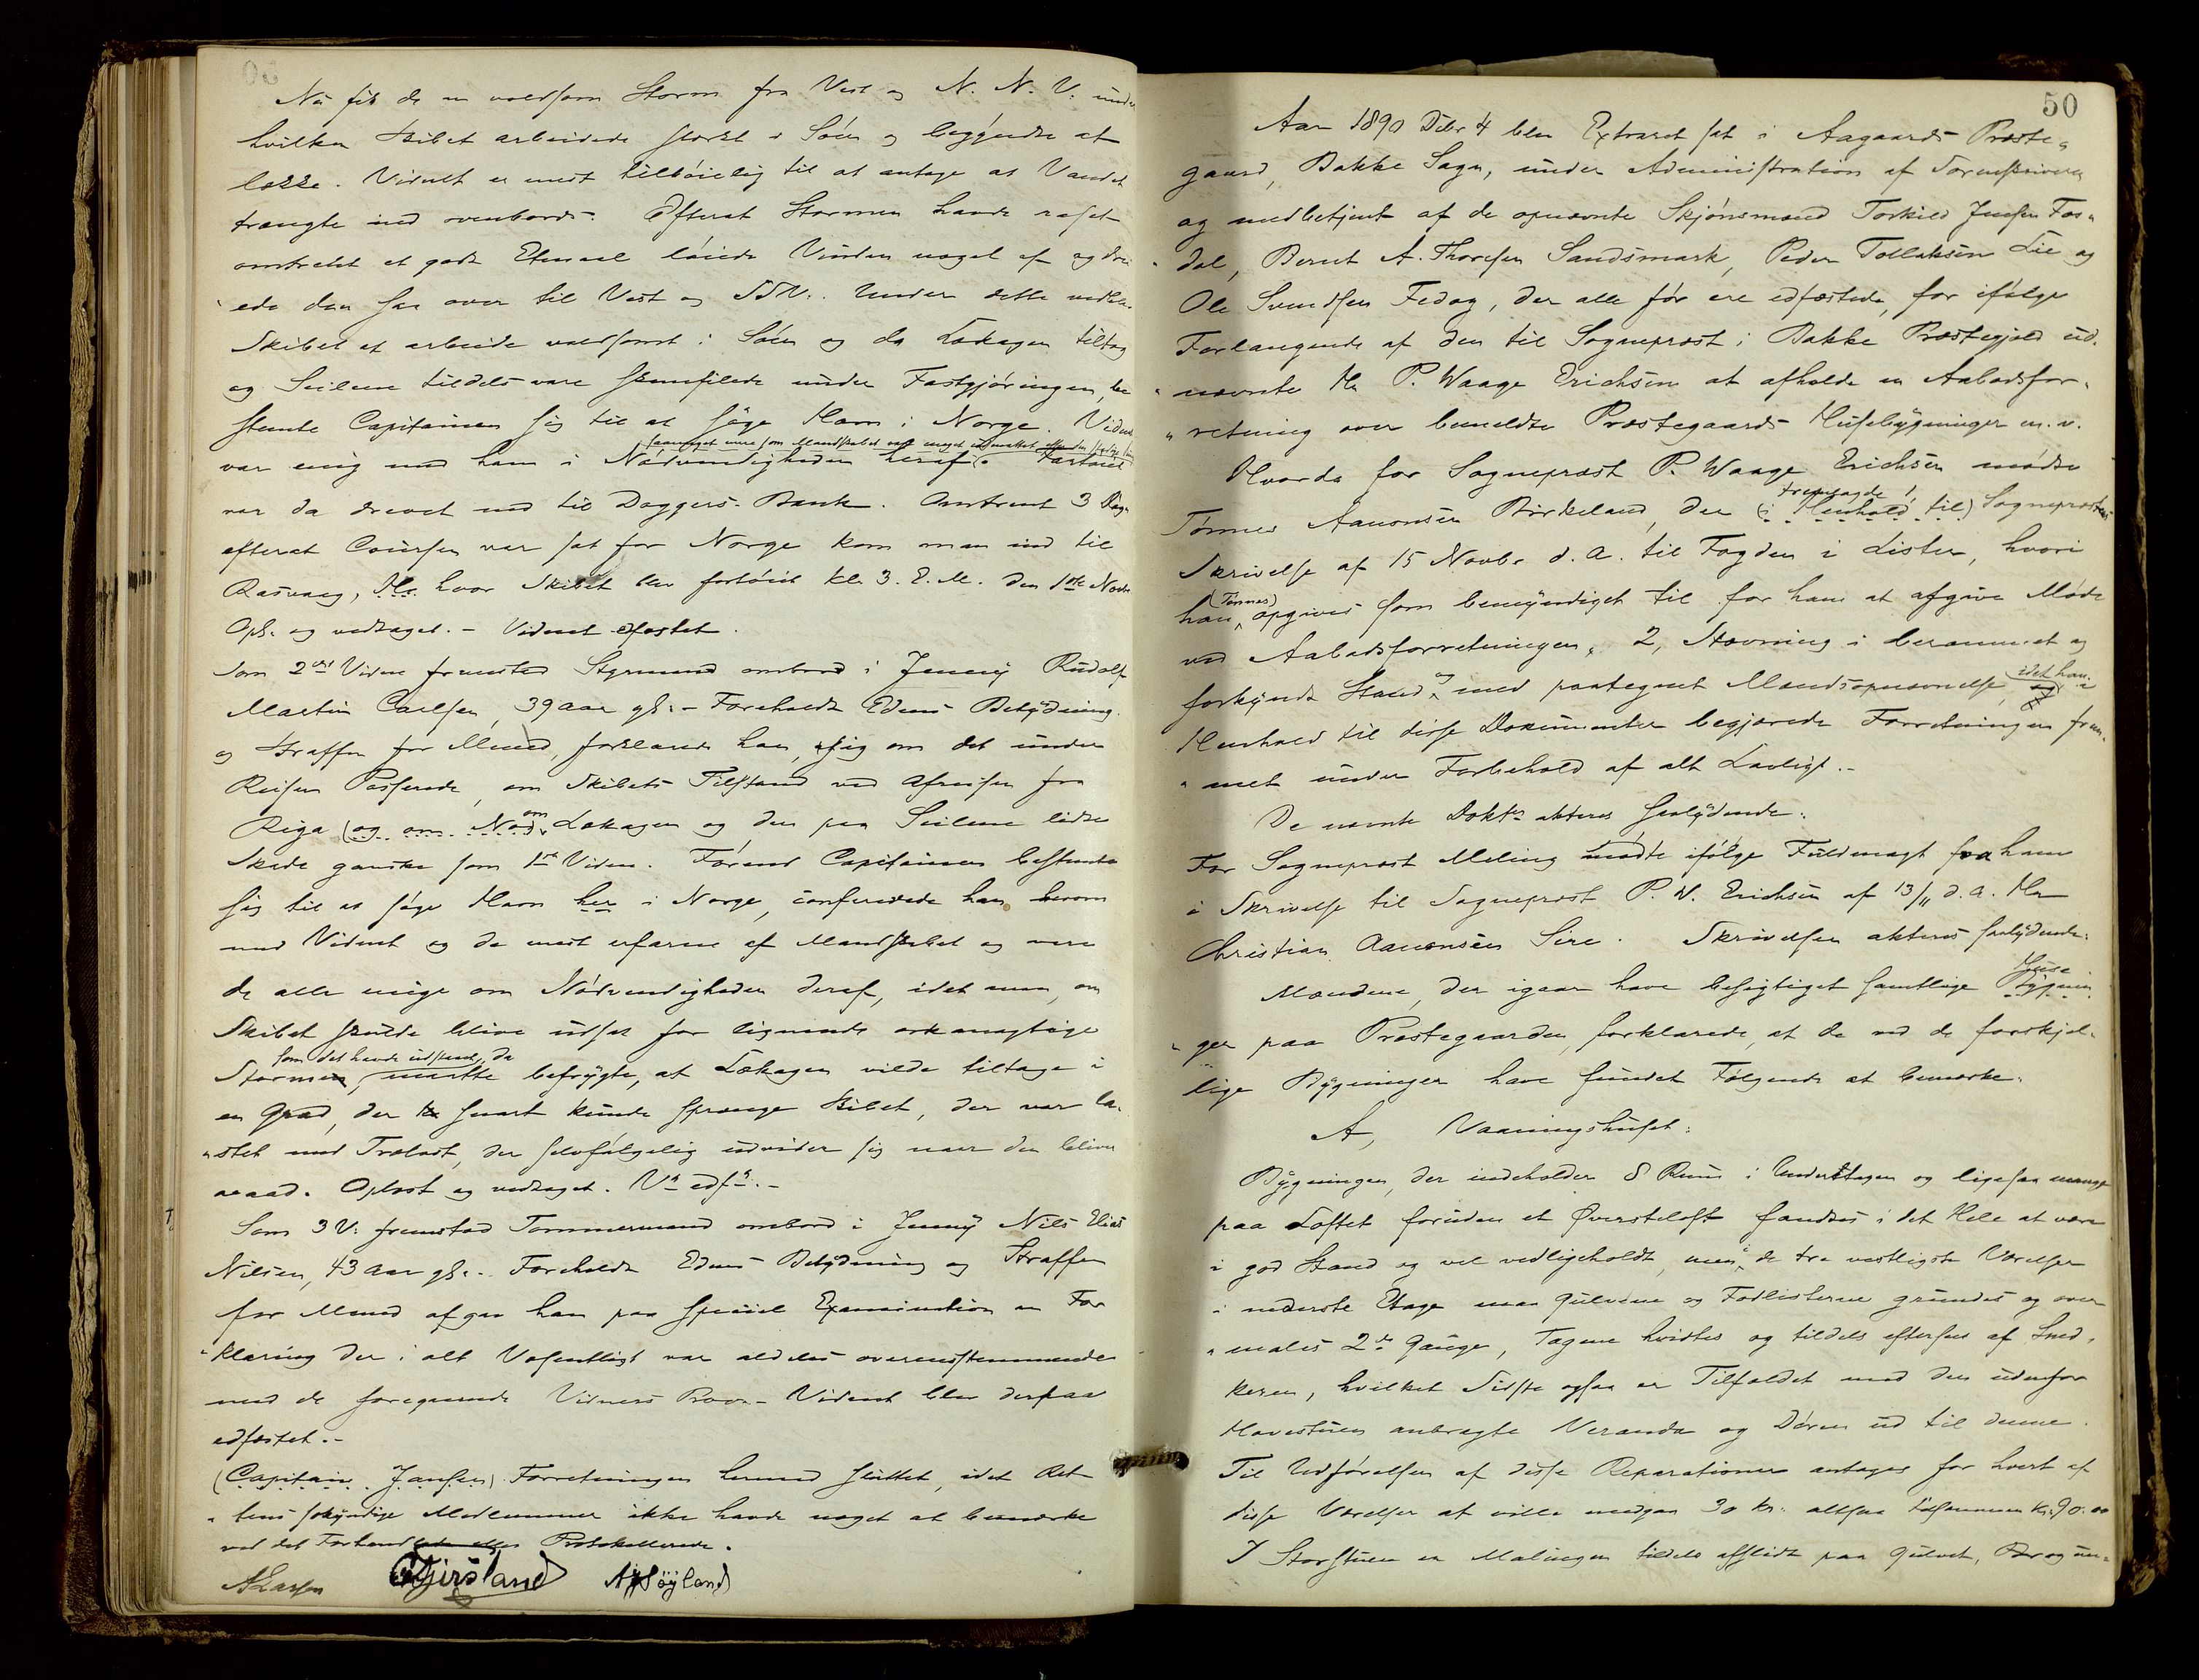 Nu fik de en voldsom Storm fra Vest og N. N. V. under
hvilken Skibet arbeidede stærkt i Søen og begyndte at
lække. Vidnet er mest tilbøielig til at antage at Vandet
trængte ind ovenbords. Efterat Stormen havde raset
omtrent et godt Etmaal løiede Vinden noget af og drei
ede den saa over til Vest og SSV. Under dette vedblev
Skibet at arbeide voldsomt i Søen og da Lækagen tiltog
og Seilene tildels vare skamfilede under Fastgjøringen, be
stemte Capitainen sig til at søge Havn i Norge. Vidnet
saameget mere som Mandskabet var meget udmattet
var enig med ham i Nødvendigheden heraf. Fartøiet
var da drevet ned til Doggers-Bank. Omtrent 3 Dage
efterat Coursen var sat for Norge kom man ind til
Rasvaag, He hvor Skibet blev fortøiet kl. 3. E. M. den 1ste Novbr
Opl. og vedtaget. - Vidnet edfæstet.
Som 2det Vidne fremstod Styrmand ombord i Jenny Rudolf
Martin Carlsen, 39 aar gl. - Foreholdt Edens Betydning
og Straffen for Meened, forklarede han sig om det under
Reisen Passerede, om Skibets Tilstand ved Afreisen fra
Riga (og om Nød) om Lækagen og den paa Seilene lidte
Skade ganske som 1ste Vidne. Førend Capitainen bestemte
sig til at søge Havn her i Norge, confererede han herom
med Vidnet og de mest erfarne af Mandskabet og vare
de alle enige om Nødvendigheden deraf, idet man, om
Skibet skulde blive udsat for lignende orkanagtige
som det havde udstaaet, da
Stormen, maatte befrygte, at Lækagen vilde tiltage i
en Grad, der snart kunde sprænge Skibet, der var la-
stet med Trælast, der selvfølgelig udvider sig naar den bliver
vaad. Oplæst og vedtaget. Vn edf.n -
Som 3 V. fremstod Tømmermand ombord i Jenny Nils Elias
Nilsen, 43 aar gl. - Foreholdt Edens Betydning og Straffen
for Meened afgav han paa speciel Examination en For
klaring der i alt Væsentligt var aldeles overensstemmende
med de foregaaende Vidners Prov. - Vidnet blev derpaa
edfæstet. -
(Capitain Jansen) Forretningen hermed sluttet, idet Ret
tens søkyndige Medlemmer ikke havde noget at bemærke
ved det Forhandlede eller Protokollerede.
A Larsen Gjersland A. Høyland
50
Aar 1890 Debr 4 blev Extraret sat i Aagaards Præste-
gaard, Bakke Sogn, under Administration af Sorenskriveren
og medbetjent af de opnævnte Skjønsmænd Torkild Jensen Fos-
dal, Bernt A. Thorsen Sandsmark, Peder Tollaksen Lie og
Ole Svendsen Fedog, der alle før ere edfæstede, for ifølge
Forlangende af den til Sognepræst i Bakke Præstegjeld ud-
nævnte Hr P. Waage Erichsen at afholde en Aabodsfor-
retning over bemeldte Præstegaards Husebygninger m. v.
Hvorda for Sognepræst P. Waage Erichsen mødte
fremlagde 1,
Tønnes Aanonsen Birkeland, der (i Henhold til) Sognepræstens
Skrivelse af 15 Novbr d. A. til Fogden i Lister, hvori
(Tønnes)
han opgives som bemyndiget til for ham at afgive Møde
ved Aabodsforretningen, 2, Stævning i berammet og
forkyndt Stand og med paategnet Mandsopnævnelse, idet han i
Henhold til disse Dokumenter begjærede Forretningen frem-
met under Forbehold af alt Lovligt. -
De nævnte Dokt.s akteres saalydende:
For Sognepræst Meling mødte ifølge Fuldmagt fra ham
i Skrivelse til Sognepræst P. W. Erichsen af 13/11 d. A. Hr
Christian Aanonsen Sire. Skrivelsen akteres saalydende:
Mændene, der igaar have besigtiget samtlige Huse Bygnin
ger paa Præstegaarden, forklarede, at de ved de forskjel-
lige Bygninger have fundet Følgende at bemærke.
A, Vaaningshuset:
Bygningen, der indeholder 8 Rum i Underetagen og ligesaa mange
paa Loftet foruden et Øversteloft fandtes i det Hele at være
i god Stand og vel vedligeholdt, men i de tre vestligste Værelser
i nederste Etage maa Gulvene og Fodlisterne grundes og over
males 2de Gange, Tagene hvidtes og tildels eftersees af Sned-
keren, hvilket Sidste ogsaa er Tilfældet med den udenfor
Havestuen anbragte Veranda og Døren ud til denne.
Til Udførelsen af disse Reparationer antages for hvert af
disse Værelser at ville medgaa 30 Kr. altsaa tilsammen Kr. 90.00
I Storstuen er Malingen tildels afslidt paa Gulvet,